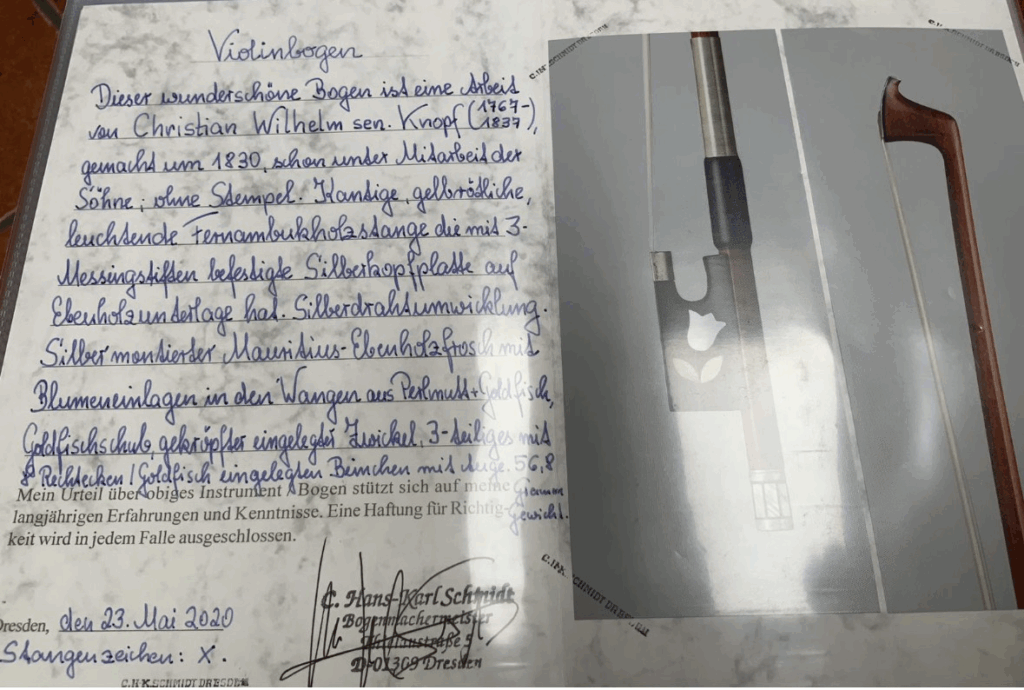 Violinbogen
Dieser wunderschöne Bogen ist eine Arbeit
von Christian Wilhelm sen. Knopf (1767-
1837),
gemacht um 1830, schon unter Mitarbeit der
Söhne; ohne Stempel. Kantige, gelbrötliche,
leuchtende Fernambukholzstange die mit 3-
Messingstiften befestigte Silberkopfplatte auf
Ebenholzunterlage hat. Silberdrahtumwicklung.
Silbermontierter Mauritius-Ebenholzfrosch mit
Blumeneinlagen in den Wangen aus Perlmutt+Goldfisch,
Goldfischschub, gekröpfter eingelegter Zwickel, 3-teiliges mit
8 Rechtecken/Goldfisch eingelegten Beinchen mit Auge. 56,8
Grammm
Gewicht.
Mein Urteil über obiges Instrument / Bogen stützt sich auf meine
langjährigen Erfahrungen und Kenntnisse. Eine Haftung für Richtig-
keit wird in jedem Falle ausgeschlossen.
Dresden, den 23. Mai 2020
Stangenzeichen: X.
C. Hans-Karl Schmidt
Bogenmachermeister
D-01309 Dresden
C.H.K.SCHMIDT DRESDEN
SCHMIDT DRESDEN
SCHMIDT DRESDEN
SCHMIDT DRESDEN